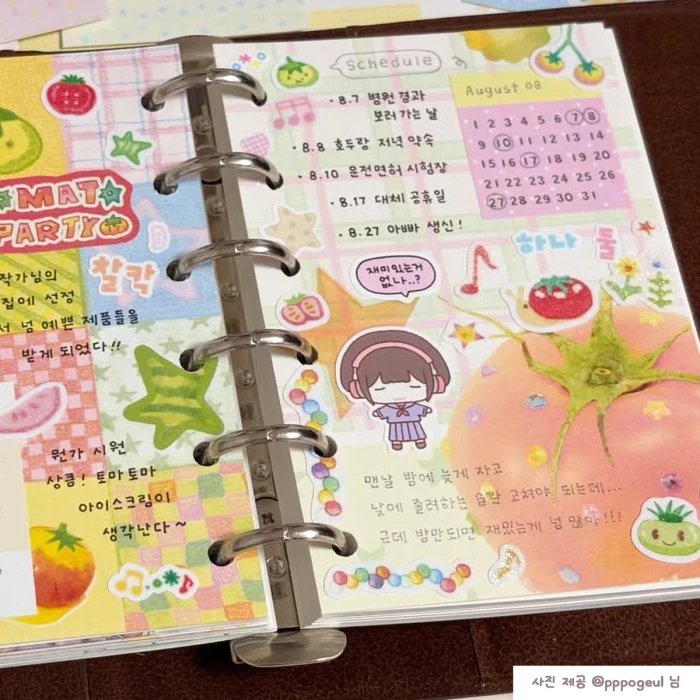 MAT
PARTY
작가님의
집에 선정
서 넘 예쁜 제품들을
받게 되었다!!
찰칵
뭔가 시원
상큼! 토마토마
아이스크림이
생각난다~
Schedule
· 8.7 병원 결과
보러 가는 날
· 8.8 호두랑 저녁 약속
· 8.10 운전면허 시험장
· 8.17 대체 공휴일
· 8.27 아빠 생신!
August 08
1 2 3 4 5 6 7 8
9 10 11 12 13 14
15 16 17 18 19 20
21 22 23 24 25 26
27 28 29 30 31
하나 둘
재미있는거
없나..?
맨날 밤에 늦게 자고
낮에 졸려하는 습관 고쳐야 되는데...
근데 밤만되면 재밌는게 넘 많아!!!
사진 제공 @pppogeul 님